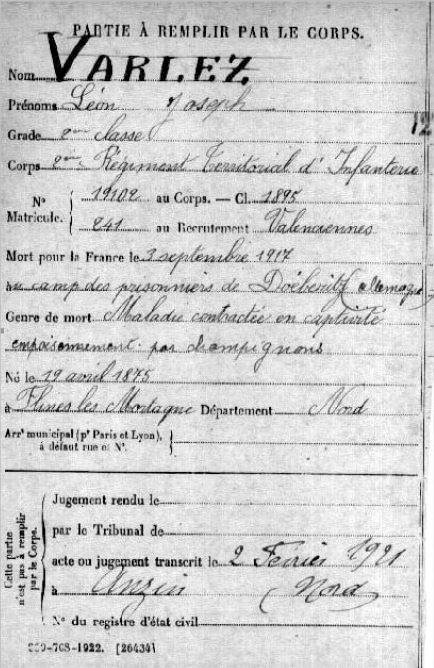 PARTIE À REMPLIR PAR LE CORPS.
Nom VARLEZ
Prénoms Léon Joseph
Grade 2ème classe
Corps 2ème Régiment Territorial d'Infanterie
N° Matricule. { 19102 au Corps. — Cl. 1895
241 au Recrutement Valenciennes
Mort pour la France le 3 septembre 1917
au camp des prisonniers de Doëberitz (allemagne)
Genre de mort Maladie contractée en captivité
empoisonnement par champignons
Né le 19 avril 1875
à Flines les Mortagne Département Nord
Arrt municipal (pr Paris et Lyon),
à défaut rue et N°.
Cette partie n'est pas à remplir par le Corps.
Jugement rendu le
par le Tribunal de
acte ou jugement transcrit le 2 Février 1921
à Anzin (Nord
N° du registre d'état civil
-708-1922. [26434]
12